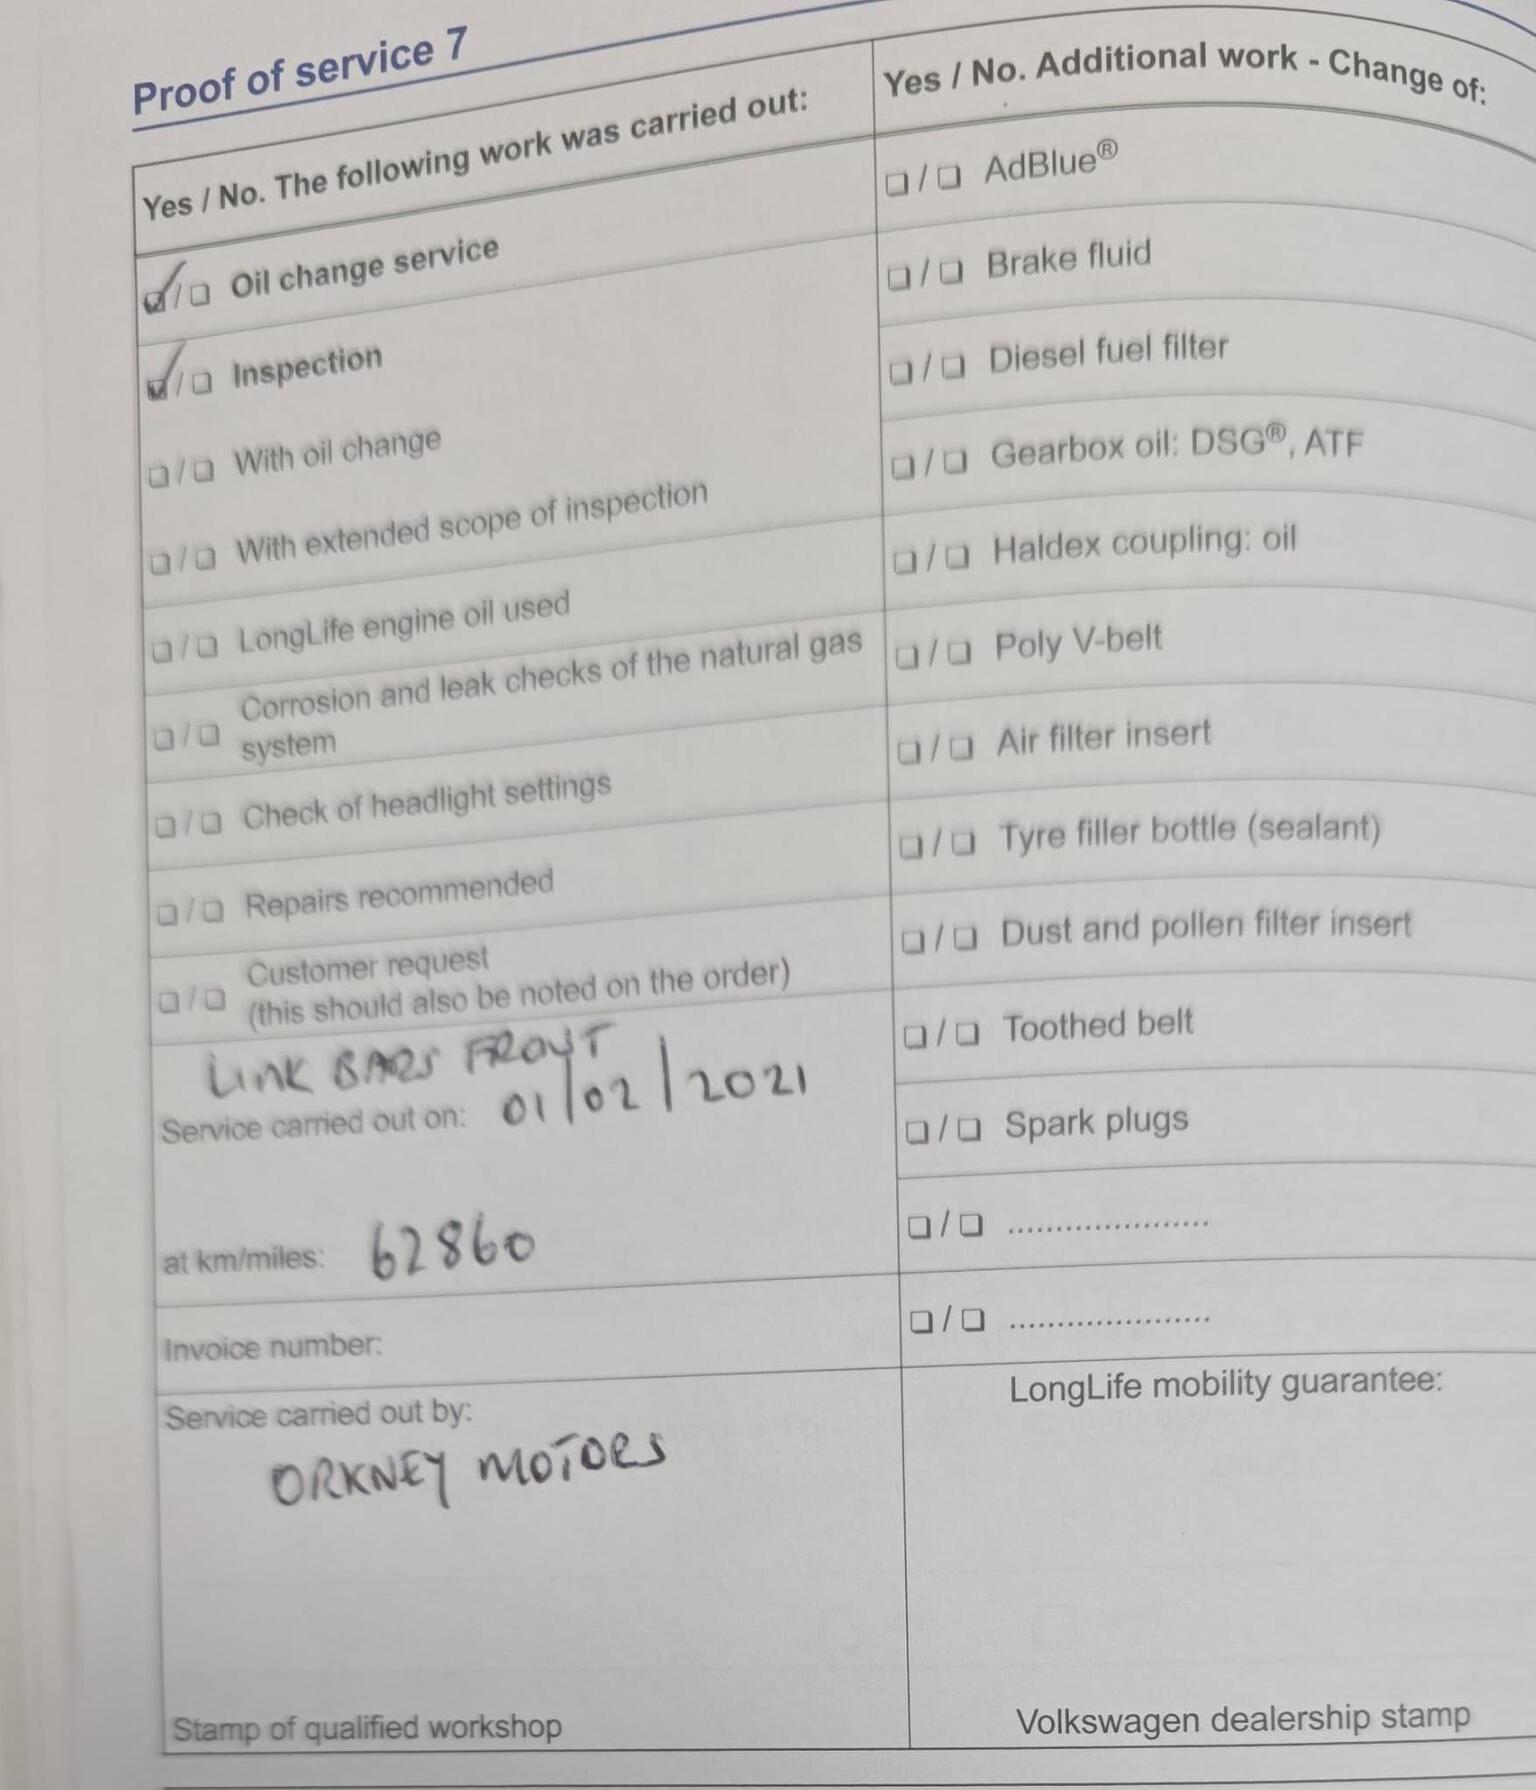 Proof of service 7
Yes / No. The following work was carried out:
☑/☐ Oil change service
☑/☐ Inspection
☐/☐ With oil change
☐/☐ With extended scope of inspection
☐/☐ LongLife engine oil used
☐/☐ Corrosion and leak checks of the natural gas
system
☐/☐ Check of headlight settings
☐/☐ Repairs recommended
☐/☐ Customer request
(this should also be noted on the order)
LINK BARS FRONT
Service carried out on: 01/02/2021
at km/miles: 62860
Invoice number:
Service carried out by:
ORKNEY MOTORS
Stamp of qualified workshop
Yes / No. Additional work - Change of:
☐/☐ AdBlue®
☐/☐ Brake fluid
☐/☐ Diesel fuel filter
☐/☐ Gearbox oil: DSG®, ATF
☐/☐ Haldex coupling: oil
☐/☐ Poly V-belt
☐/☐ Air filter insert
☐/☐ Tyre filler bottle (sealant)
☐/☐ Dust and pollen filter insert
☐/☐ Toothed belt
☐/☐ Spark plugs
☐/☐ .....................
☐/☐ .....................
LongLife mobility guarantee:
Volkswagen dealership stamp